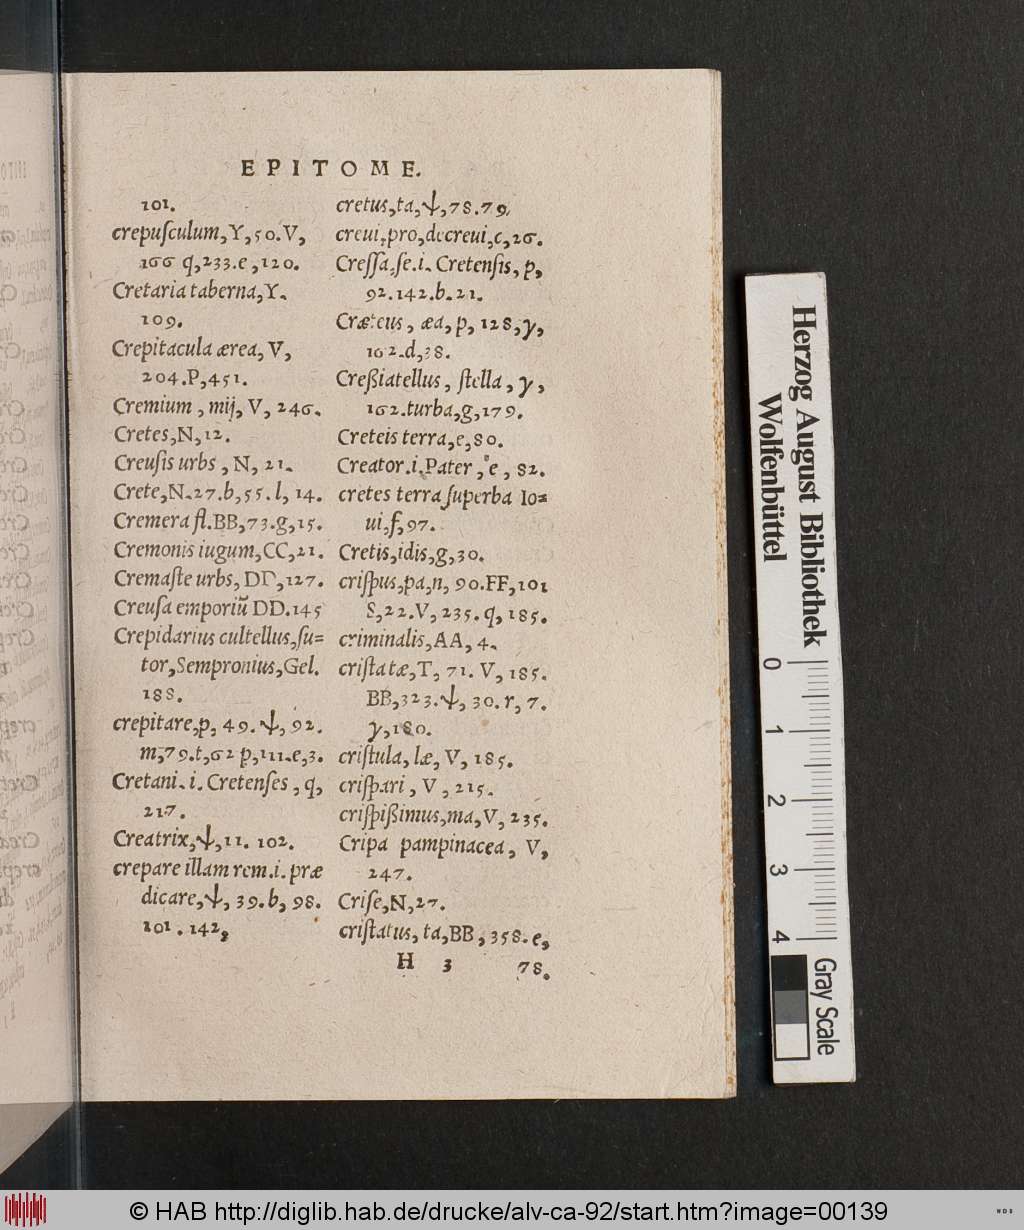 EPITOME.
101.
crepuſculum, Y, 50. V,
166 q, 233. e, 120.
Cretaria taberna, Y.
109.
Crepitacula ærea, V,
204. P, 451.
Cremium, mij, V, 246.
Cretes, N, 12.
Creuſis urbs, N, 21.
Crete, N. 27. b, 55. l, 14.
Cremera fl. BB, 73. g, 15.
Cremonis iugum, CC, 21.
Cremaſte urbs, DD, 127.
Creuſa emporiũ DD. 145
Crepidarius cultellus, ſu=
tor, Sempronius, Gel.
188.
crepitare, p, 49. ψ, 92.
m, 79. t, 62 p, 111. e, 3.
Cretani. i. Cretenſes, q,
217.
Creatrix, ψ, 11. 102.
crepare illam rem. i. præ
dicare, ψ, 39. b, 98.
101. 142,
cretus, ta, ψ, 78. 79,
creui, pro, decreui, c, 26.
Creſſa, ſe. i. Cretenſis, p,
92. 142. b. 21.
Cræteus, æa, p, 128, γ,
162. d, 38.
Creßiatellus, ſtella, γ,
162. turba, g, 179.
Creteis terra, e, 80.
Creator. i. Pater, e, 82.
cretes terra ſuperba Io=
ui, f, 97.
Cretis, idis, g, 30.
criſpus, pa, n, 90. FF, 101
S, 22. V, 235. q, 185.
criminalis, AA, 4.
criſtatæ, T, 71. V, 185.
BB, 323. ψ, 30. r, 7.
γ, 180.
criſtula, læ, V, 185.
criſpari, V, 215.
criſpißimus, ma, V, 235.
Cripa pampinacea, V,
247.
Criſe, N, 27.
criſtatus, ta, BB, 358. e,
H 3 78.
Herzog August Bibliothek
Wolfenbüttel
0 1 2 3 4
Gray Scale
© HAB http://diglib.hab.de/drucke/alv-ca-92/start.htm?image=00139